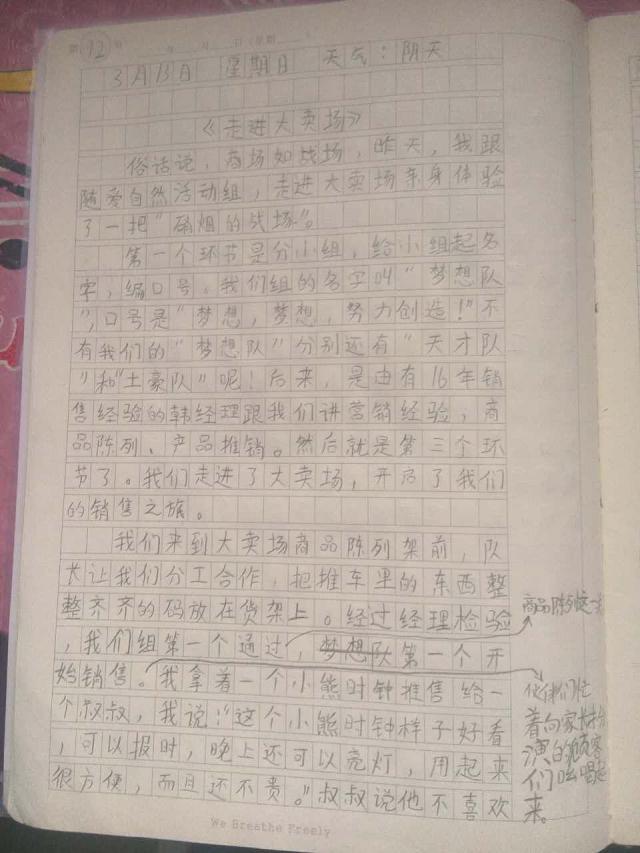 第 12 页 年 月 日 (星期
3月13日 星期日 天气:阴天
《走进大卖场》
俗话说,商场如战场,昨天,我跟
随爱自然活动组,走进大卖场亲身体验
了一把"硝烟的战场"。
第一个环节是分小组,给小组起名
字,编口号。我们组的名字叫"梦想队
",口号是"梦想,梦想,努力创造!"不
有我们的"梦想队"分别还有"天才队
"和"土豪队"呢!后来,是由有16年销
售经验的韩经理跟我们讲营销经验,商
品陈列、产品推销。然后就是第三个环
节了。我们走进了大卖场,开启了我们
的销售之旅。
我们来到大卖场商品陈列架前,队
长让我们分工合作,把推车里的东西整
整齐齐的码放在货架上。经过经理检验
商品陈列
,我们组第一个通过,梦想队第一个开
始销售。我拿着一个小熊时钟推售给一
个叔叔,我说:"这个小熊时钟样子好看
,可以报时,晚上还可以亮灯,用起来
很方便,而且还不贵。"叔叔说他不喜欢
伙伴们忙
着向家长
演的顾客
们吆喝起
来。
We Breathe Freely